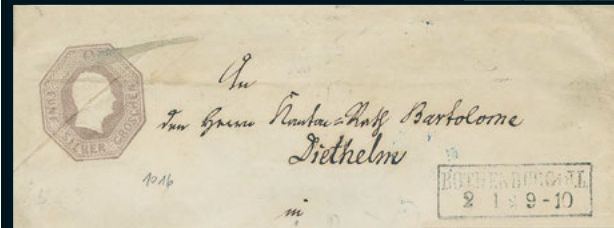 FUENF SILBER GROSCHEN
An
den Herrn Kantons-Rath Bartolome
Diethelm
1016
in
ROTHENBURG A/L
2 1 * 9-10